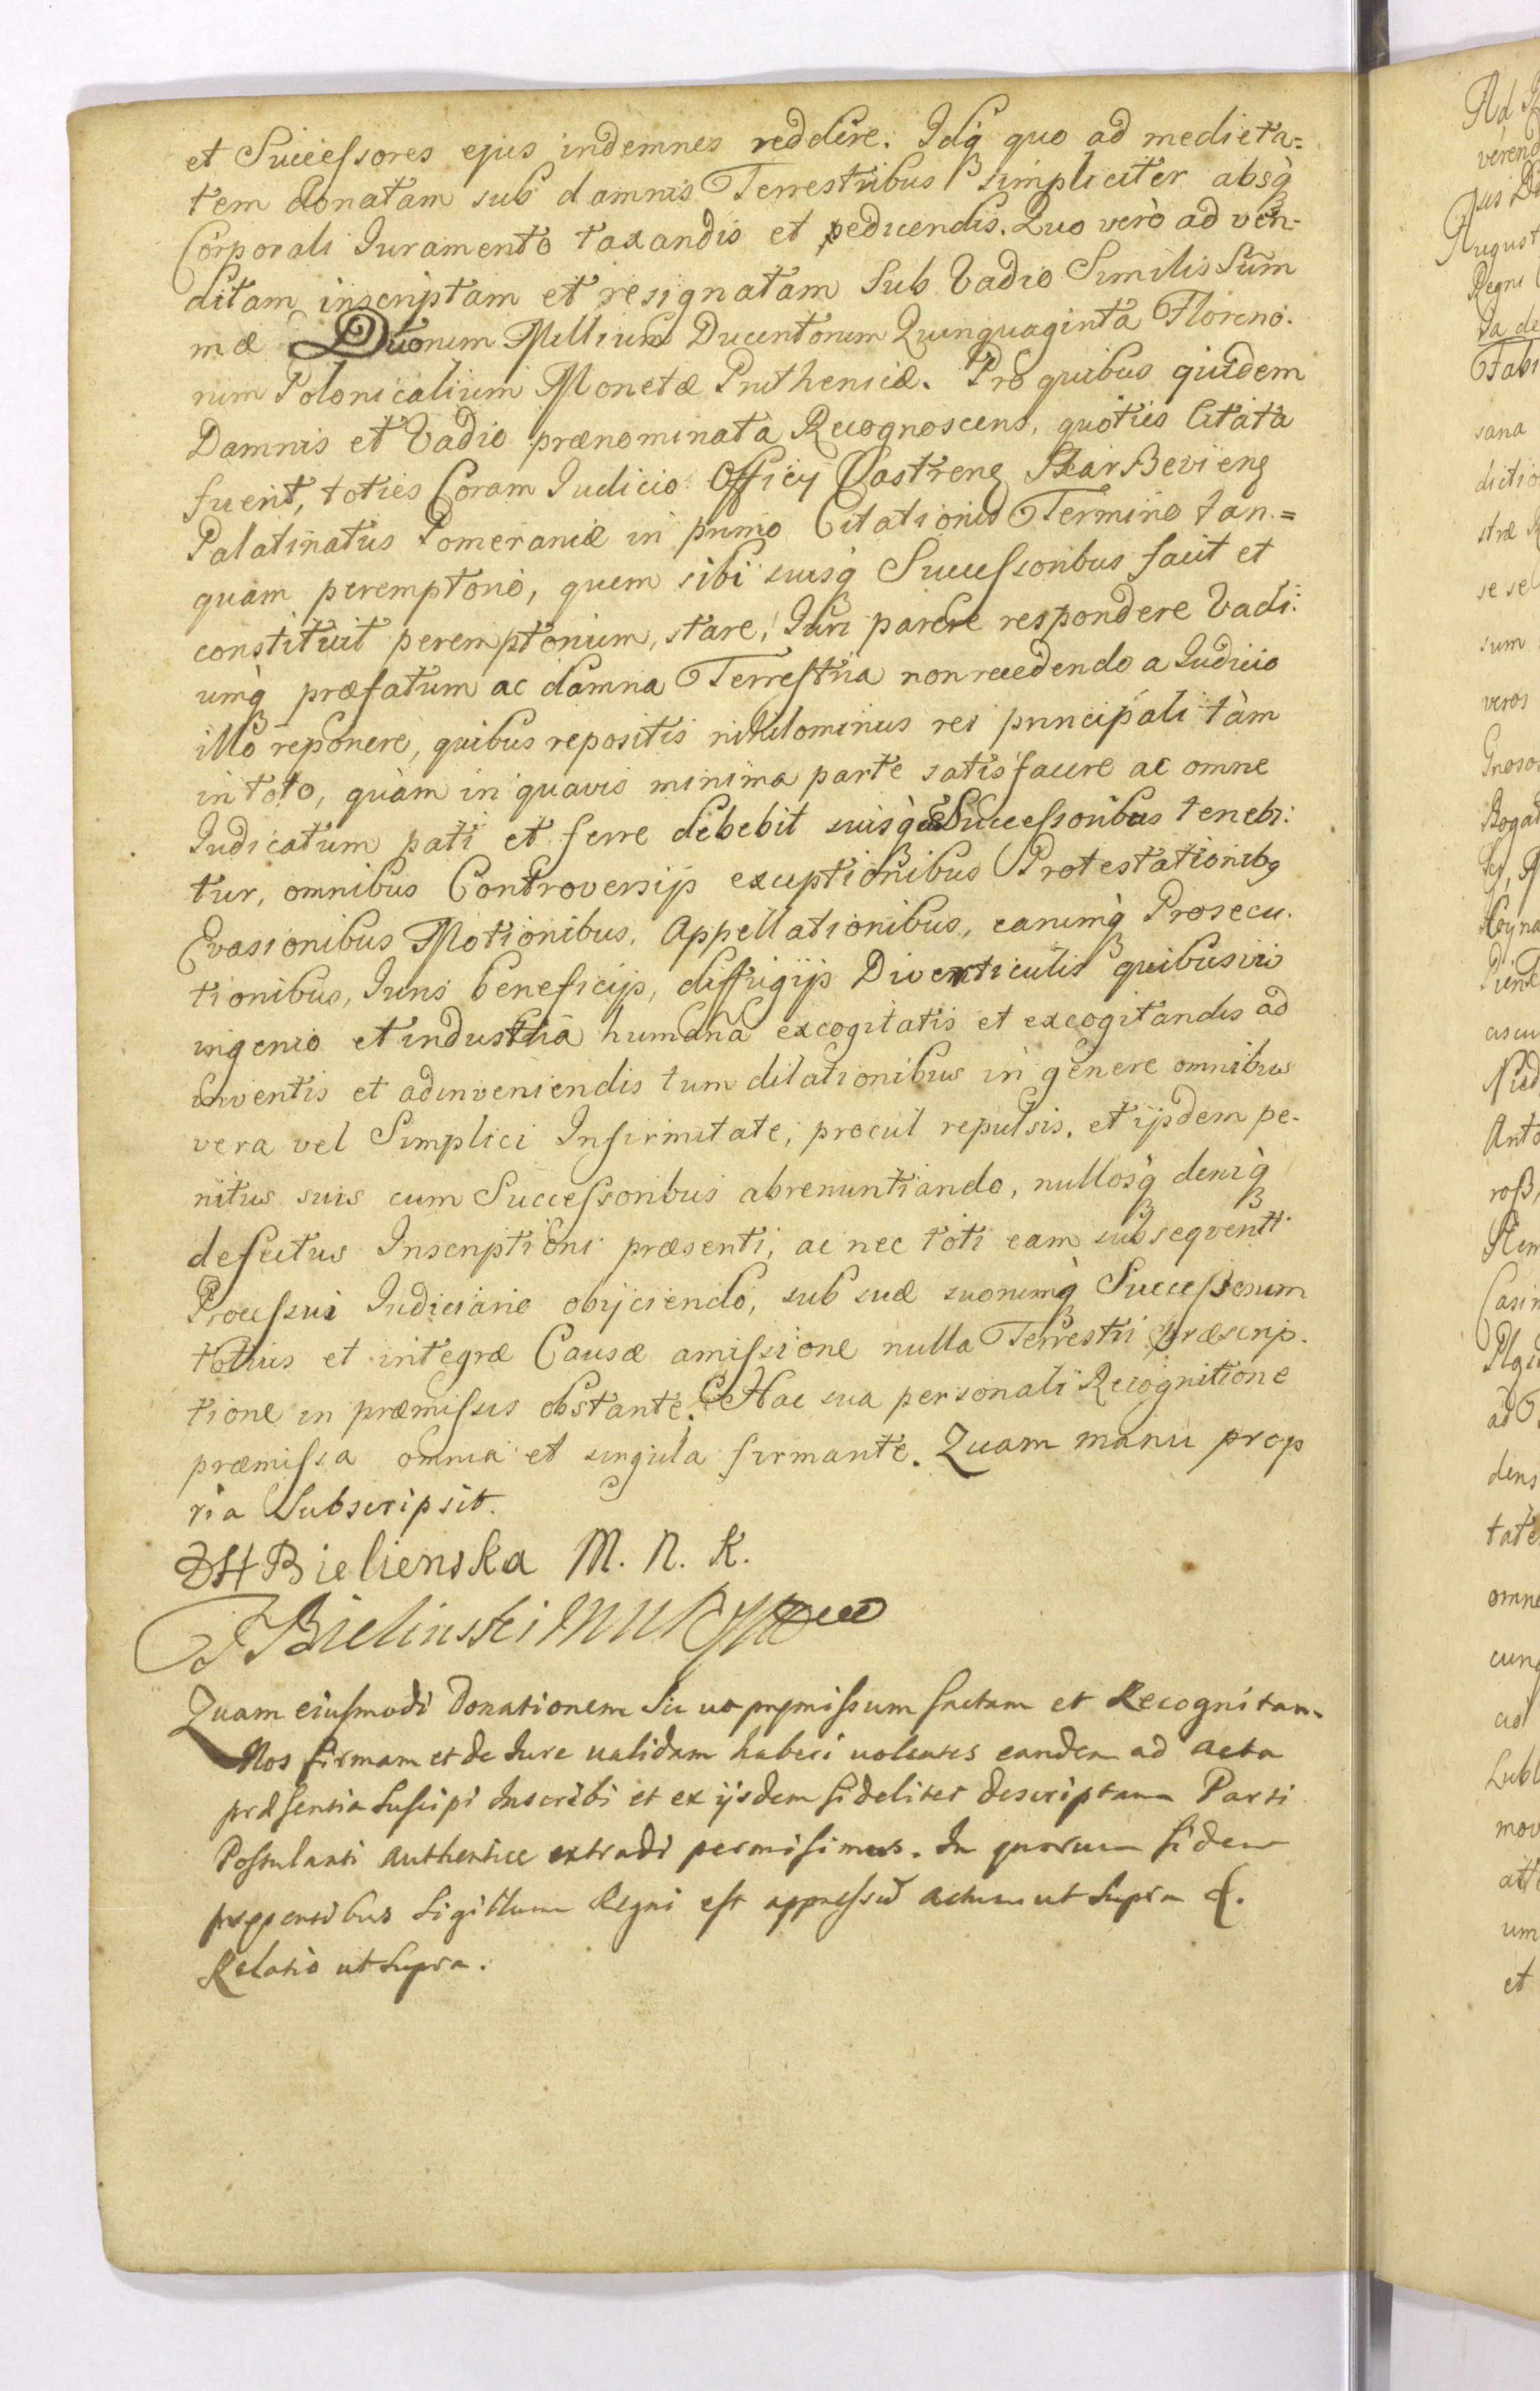 et Successores ejus indemnes reddere. Idq̀ quo ad medieta=
tem donatam sub damnis Terrestribus simpliciter absq̀
Corporali Iuramento taxandis et peducendis. Quo verò ad ven-
ditam inscriptam et resignatam sub Vadio Similis Sum̄
mæ Duorum Millium Ducentorum Quinquaginta Floreno.
rum Polonicalium Monetæ Pruthenicæ. Pro quibus quidem
Damnis et Vadio prænominata Recognoscens, quoties Citata
fuerit, toties Coram Iudicio Officij Castreng SkarBevieng
Palatinatus Pomeraniæ in primo Citationis Termino tan=
quam peremptorio, quem sibi suisq̀ Successoribus facit et
constituit peremptorium, stare, Iuri parere respondere Vadi:
umq̀ præfatum ac damna Terrestria non recedendo a Iudicio
illo reponere, quibus repositis nihilominus rei principali tàm
in toto, quàm in quavis minima parte satisfacere ac omne
Iudicatum pati et ferre debebit suisq̀ Successoribus tenebi:
tur, omnibus Controversijs exceptionibus Protestationibq
Evasionibus Motionibus, Appellationibus, earumq̀ Prosecu.
tionibus, Iuris beneficijs, diffugijs Diverticulis quibusvis
ingenio et industria humana excogitatis et excogitandis ad
inventis et adinveniendis tum dilationibus in genere omnibus
vera vel Simplici Infirmitate, procul repulsis, et ijsdem pe-
nitus suis cum Successoribus abrenuntiando, nullosq̀ deniq̀
defectus Inscriptioni præsenti, ac nec toti eam subsequenti
Processui Iudiciario obijciendo, sub suæ suorumq̀ Successorum
totius et integræ Causæ amissione nulla Terrestri præscrip.
tione in præmissis obstante. Hac sua personali Recognitione
præmissa omnia et singula firmante. Quam manu prop
ria Subscripsit.
Bielienska M. N. K.
Bielinski
Quam eiusmodi Donationem Sic ut præmissum factam et Recognitam
Nos firmam et de Iure validam haberi volentes eandem ad Acta
præsentia Suscipi Inscribi et ex ijsdem fideliter descriptam Parti
Postulanti Authentice extradi permisimus. In quorum fidem
præsentibus Sigillum Regni est appressū Actum ut Supra
Relatio ut Supra.